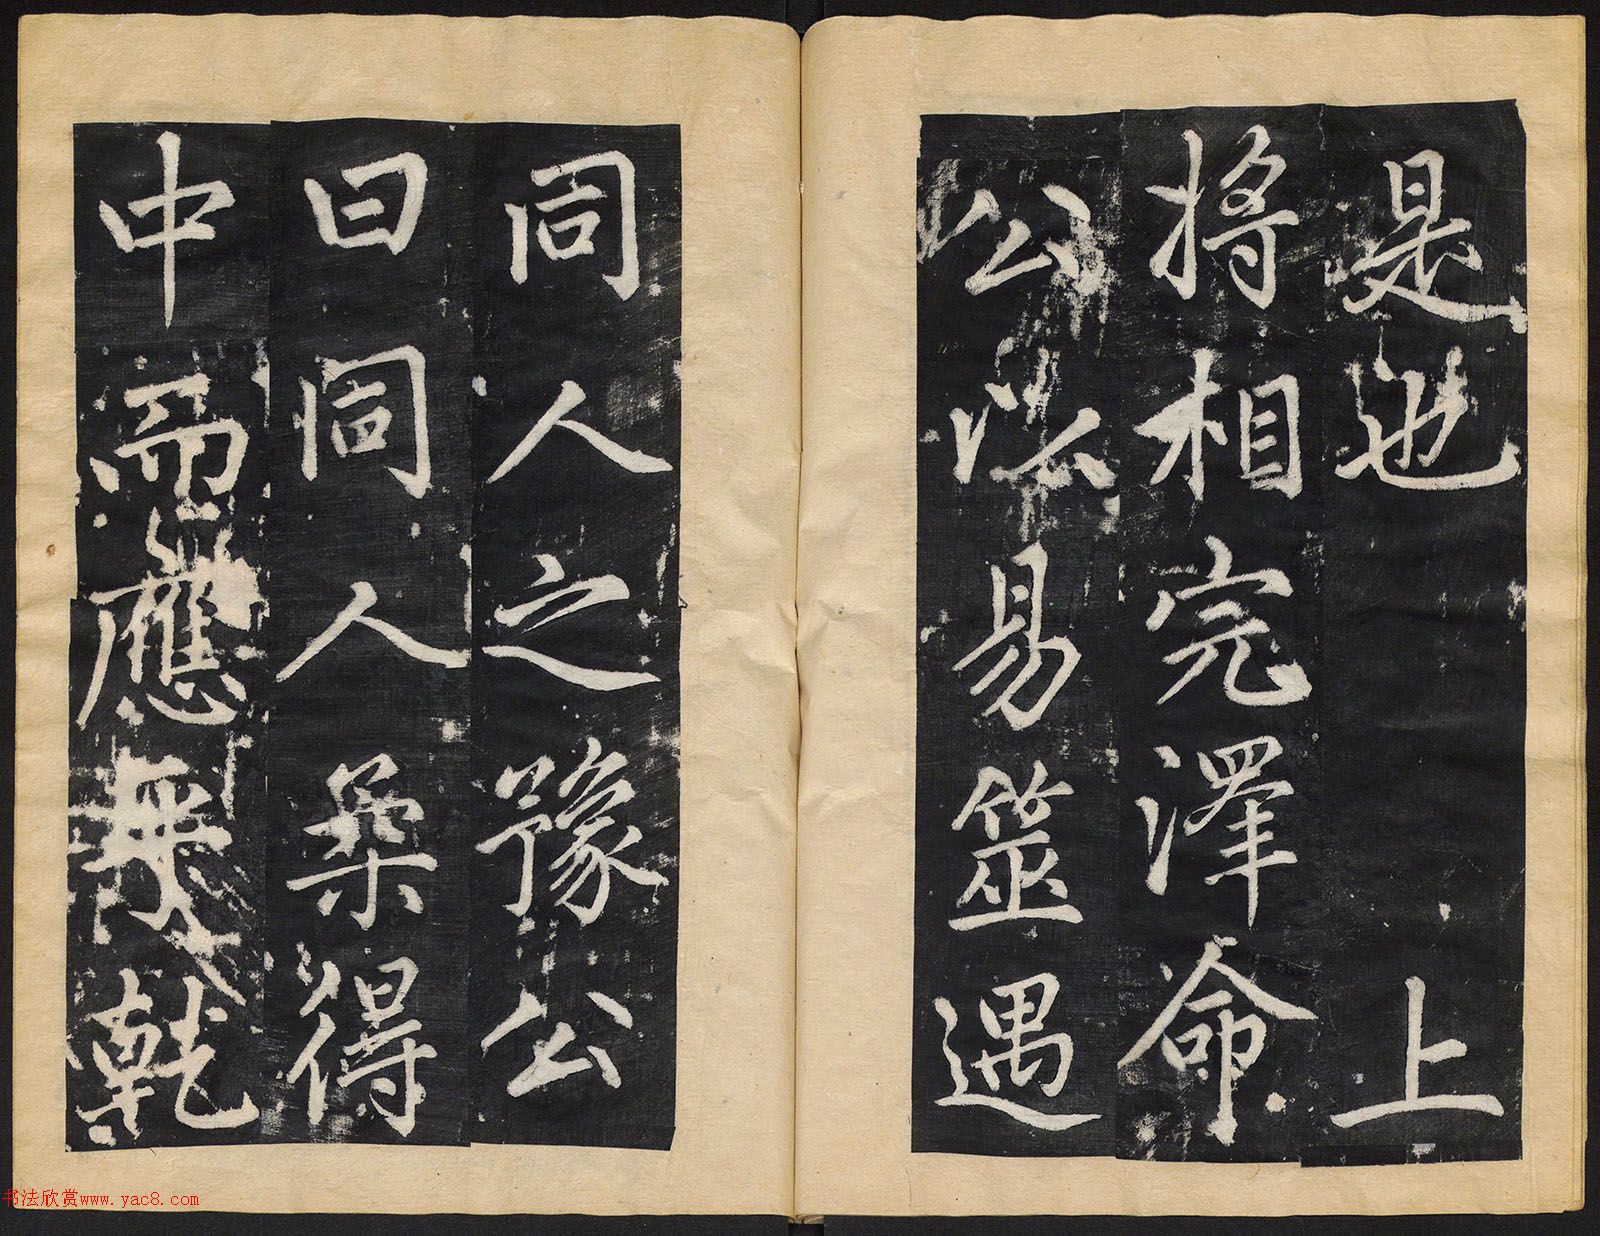 是也　上
將相完澤命
公以易筮遇
同人之豫公
曰同人柔得
中而應乎乾
书法欣赏www.yac8.com